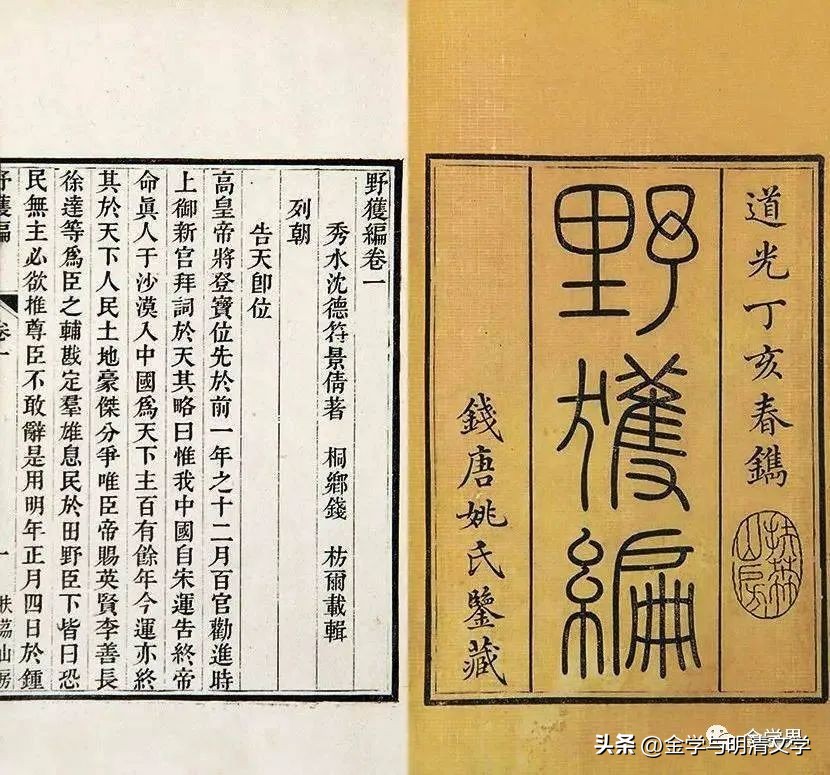 道光丁亥春鐫
扶荔山房
野獲編
錢唐姚氏鑒藏
野獲編卷一
秀水沈德符景倩著 桐鄉錢 枋爾載輯
列朝
告天卽位
高皇帝將登寶位先於前一年之十二月百官勸進時
上御新宮拜詞於天其略曰惟我中國自宋運告終帝
命眞人于沙漠入中國爲天下主百有餘年今運亦終
其於天下人民土地豪傑分爭唯臣帝賜英賢李善長
徐達等爲臣之輔戡定羣雄息民於田野臣下皆曰恐
民無主必欲推尊臣不敢辭是用明年正月四日於鍾
野獲編 卷一 一 扶荔山房
头条 @金学与明清文学